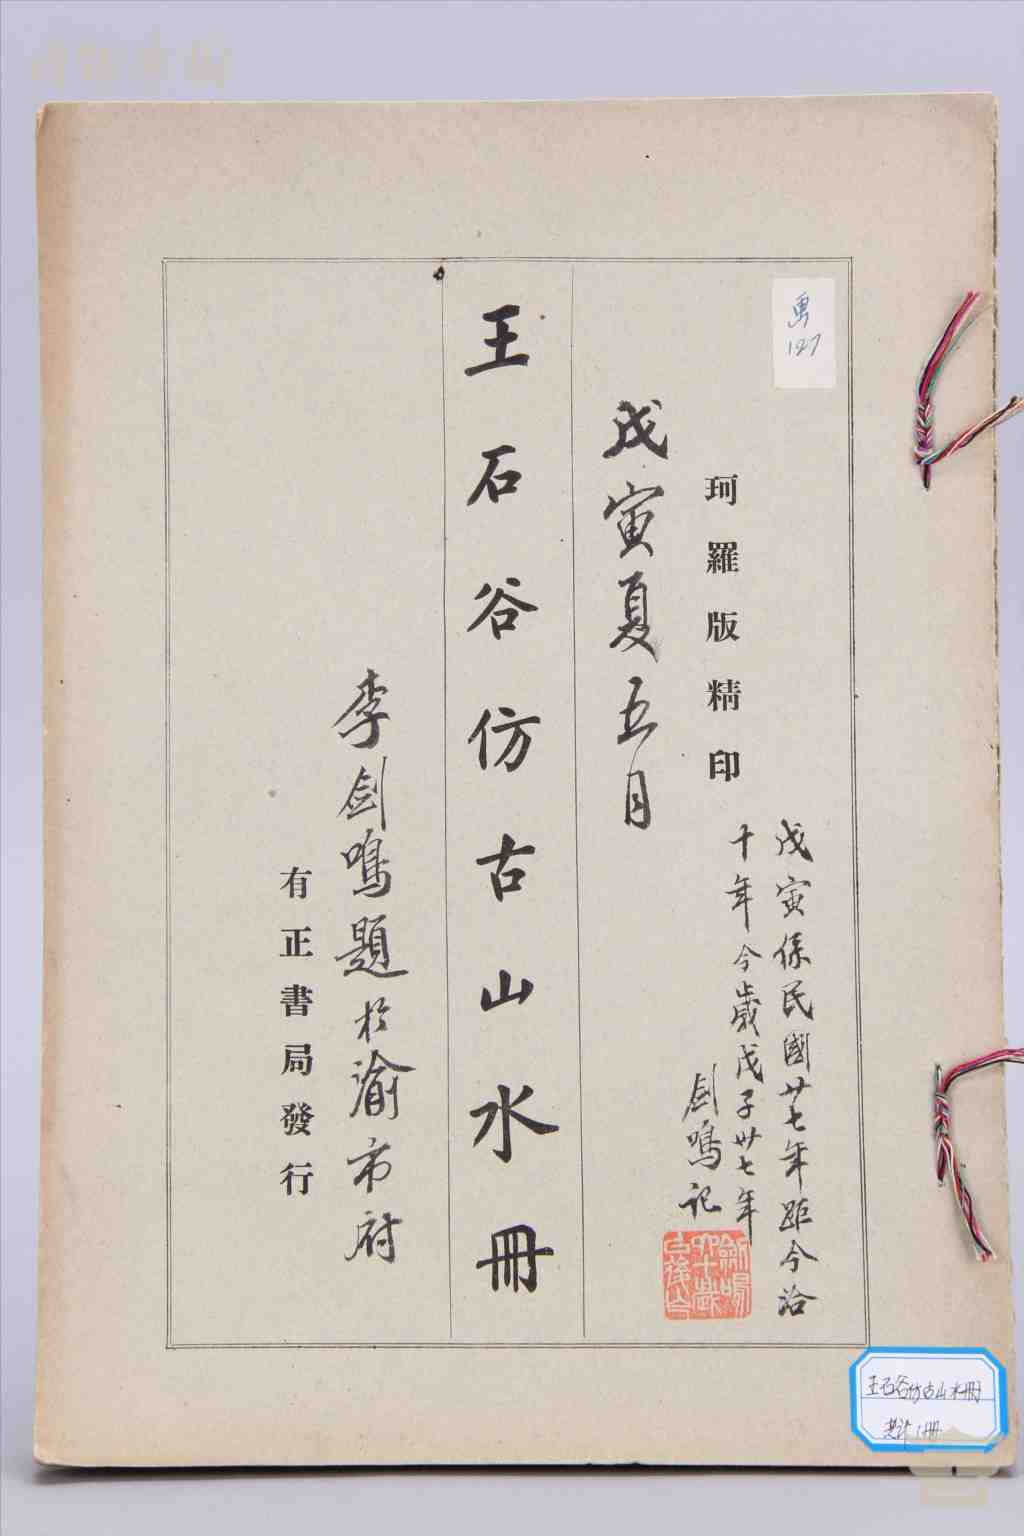 画
127
珂羅版精印
戊寅夏五月
戊寅係民國廿七年距今洽
十年今歲戊子卅七年
劍鳴記
王石谷仿古山水冊
李劍鳴題於渝市府
有正書局發行
王石谷仿古山水冊
共計1冊